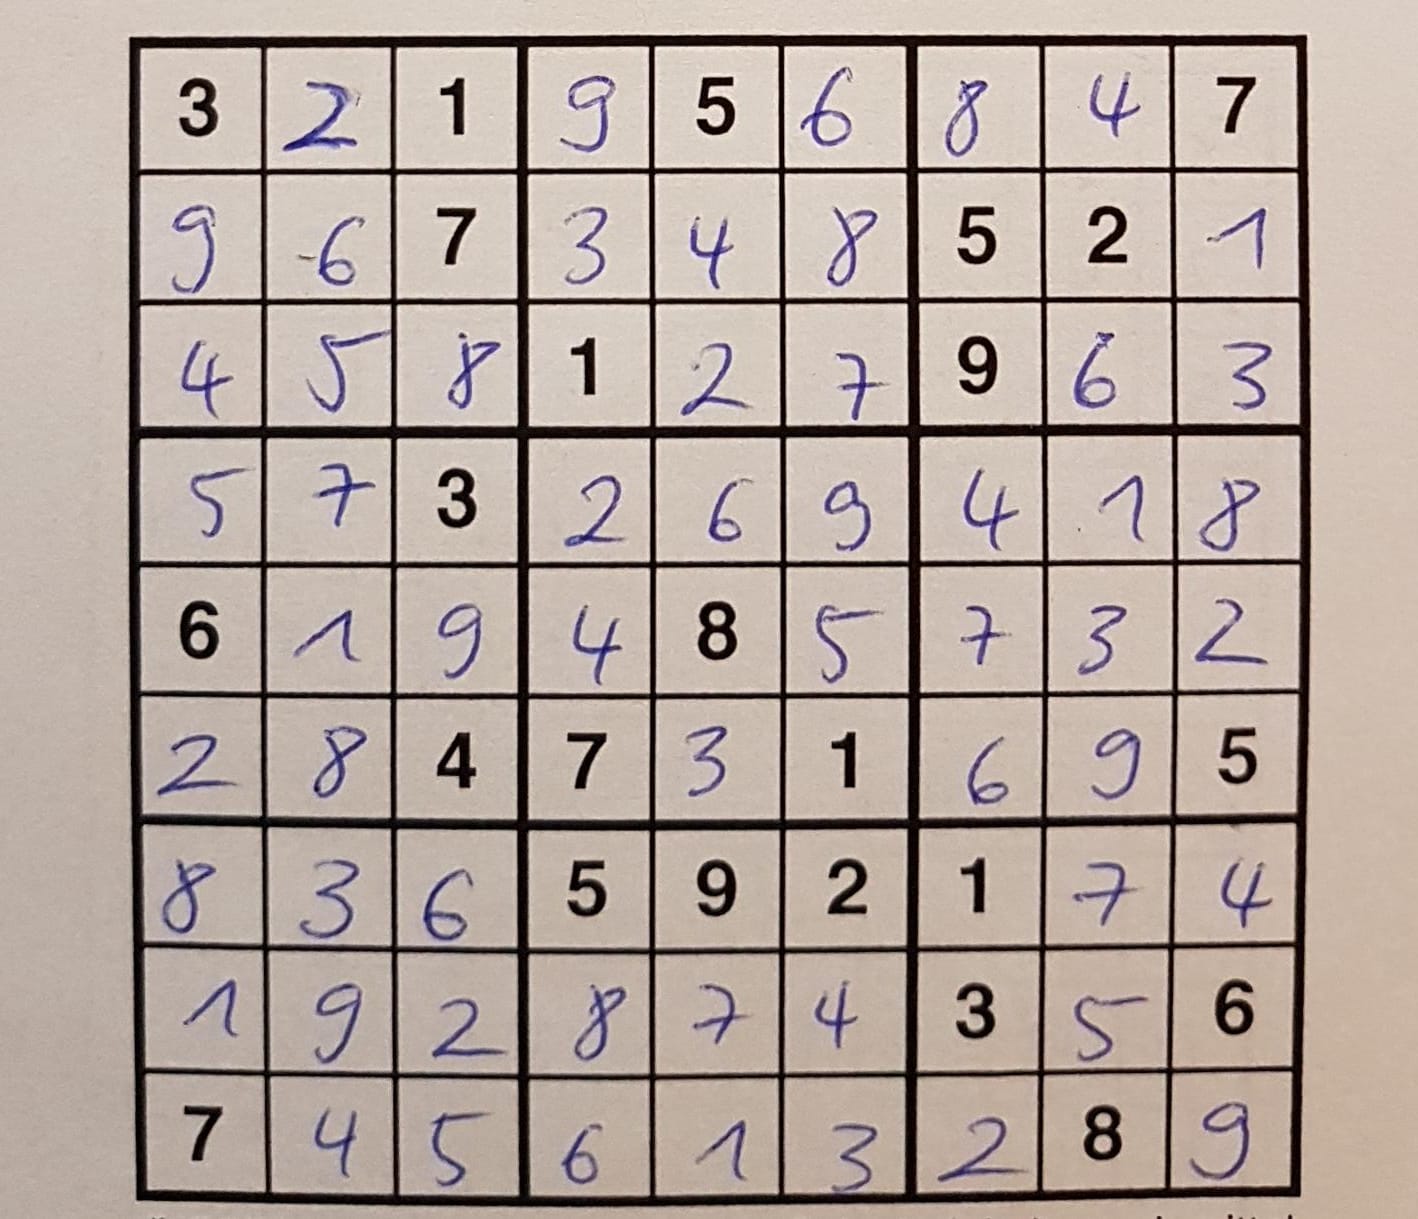 3 2 1 9 5 6 8 4 7
9 6 7 3 4 8 5 2 1
4 5 8 1 2 7 9 6 3
5 7 3 2 6 9 4 1 8
6 1 9 4 8 5 7 3 2
2 8 4 7 3 1 6 9 5
8 3 6 5 9 2 1 7 4
1 9 2 8 7 4 3 5 6
7 4 5 6 1 3 2 8 9